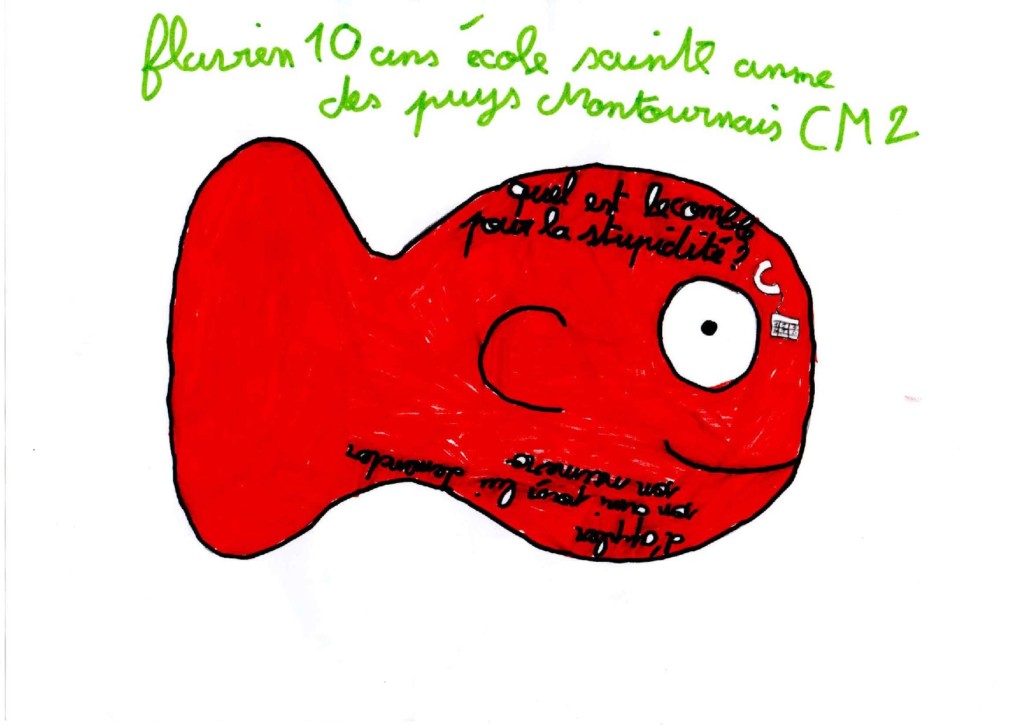 flavien 10 ans école sainte anne
des puys Montournais CM2
quel est lecomble
pour la stupidité ?
d'appler
son ami pour lui demander
son numéro